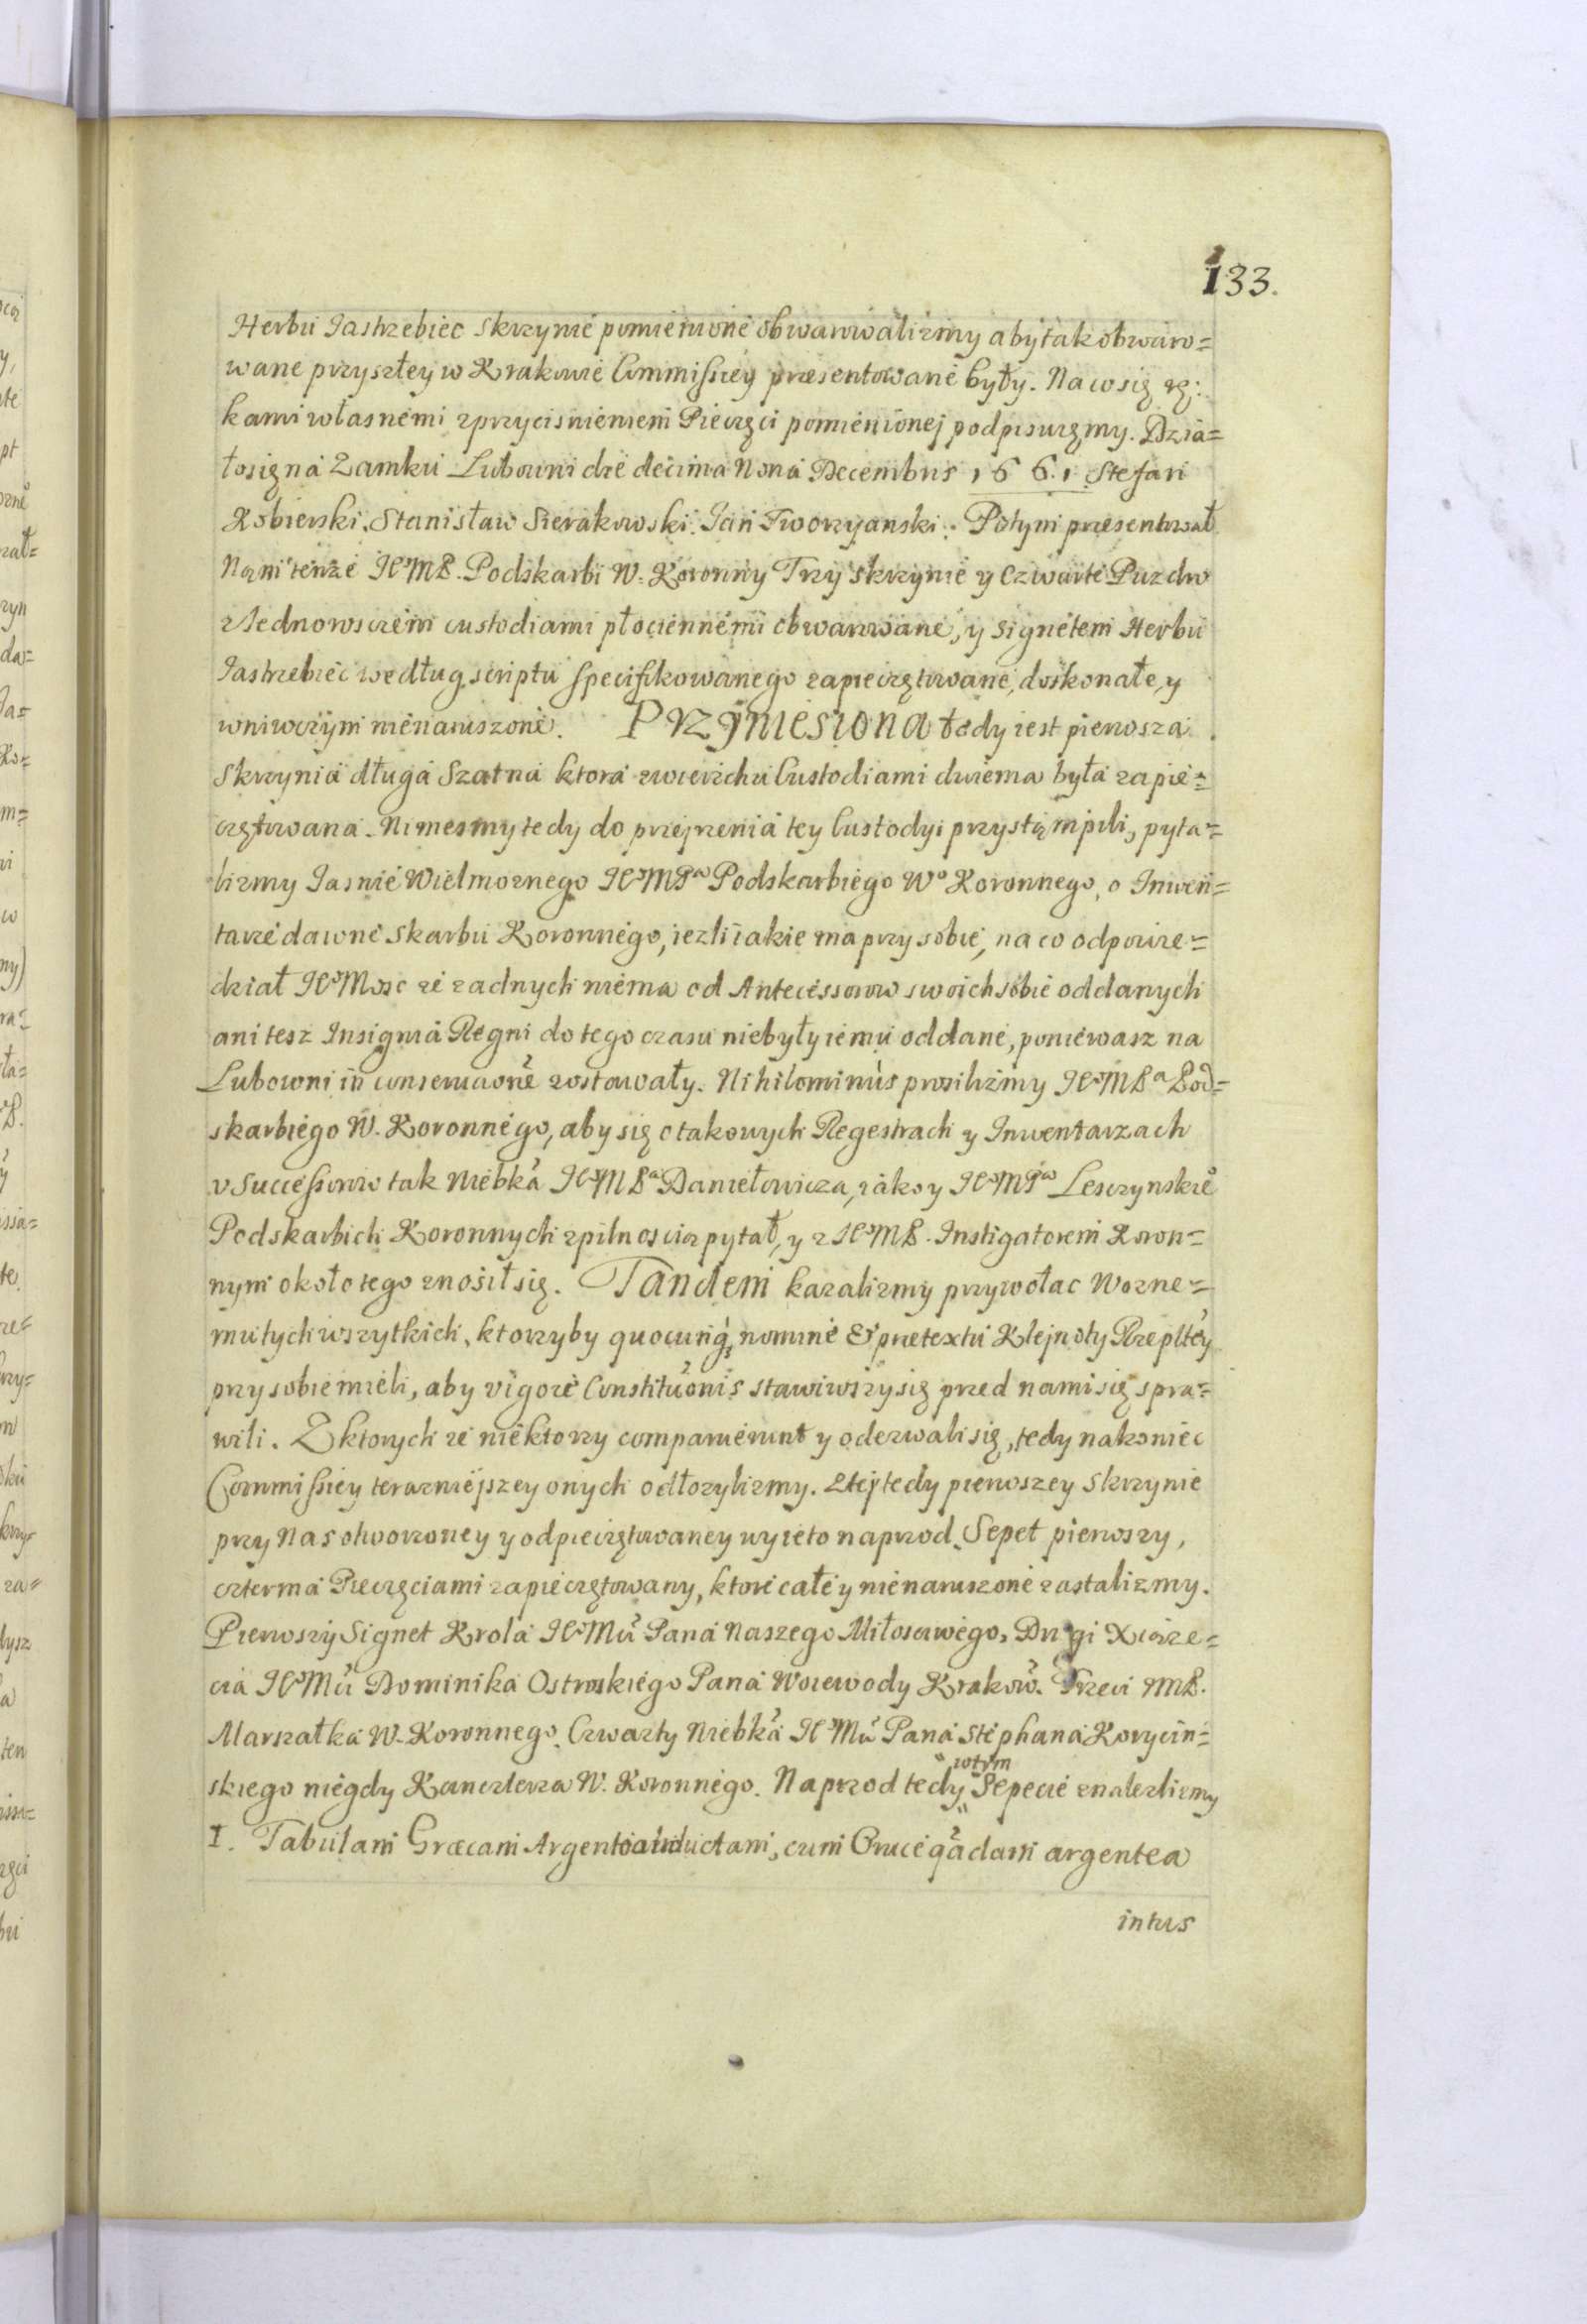 133.
Herbu Jastrzebiec skrzynie pomienione obwarowalizmy aby tak obwaro=
wane przyszłey w Krakowie Commissiey præsentowane były. Na co się rę:
kami własnemi z przycisnieniem Pieczęci pomienionej podpisuięmy. Dzia=
ło się na Zamku Lubowni die decima Nona Decembris 1661. Stefan
Kobierski. Stanisław Sierakowski. Jan Tworzyanski. Potym præsentował
Nam tenże JeoMP. Podskarbi W. Koronny Trzy skrzynie y Czwarte Puzdro
z Jednorozcem custodiami płociennemi obwarowane, y Signetem Herbu
Jastrzebiec według scriptu specifikowanego zapieczętowane, doskonałe, y
wniwczym nienaruszone. Przyniesiona tedy iest pierwsza
Skrzynia długa Szatna ktora zwierzchu Custodiami dwiema była zapie=
czętowana. Nimesmy tedy do przejrzenia tey Custodyi przystąmpili, pyta=
lizmy Jasnie Wielmoznego JeoMPa Podskarbiego Wo Koronnego, o Inwen=
tarze dawne skarbu Koronnego, iezli iakie ma przy sobie, na co odpowie=
dział JeoMosc ze zadnych niema od Antecessorow swoich sobie oddanych
ani tesz Insignia Regni do tego czasu niebyły iemu oddane, poniewasz na
Lubowni in conservaone zostawały. Nihilominus prosilizmy JeoMPa Pod=
skarbiego W. Koronnego, aby się o takowych Regestrach y Inwentarzach
v Successorow tak Niebka JeoMPa Daniełowicza, iako y JeoMPa Lesczynskie
Podskarbich Koronnych z pilnoscią pytał, y z JeoMP. Instigatorem Koron=
nym około tego znosił się. Tandem kazalizmy przywołac Wozne=
mu tych wszytkich, ktorzyby quocunq; nomine & prætextu Klejnoty Rzeplitey
przy sobie mieli, aby vigore Constituonis stawiwszy się przed nami się spra=
wili. Z ktorych ze niektorzy comparuerunt y odezwali się, tedy nakoniec
Commissiey terazniejszey onych odłozylizmy. Z tej tedy pierwszey Skrzynie
przy Nas otworzoney y odpieczętowaney wyieto naprzod Sepet pierwszy,
czterma Pieczęciami zapieczętowany, ktore całe y nienaruszone zastalizmy.
Pierwszy Signet Krola JeoMci Pana Naszego Miłosciwego, Drugi Xiąże=
cia JeoMci Dominika Ostroskiego Pana Woiewody Krakow. Trzeci JMP.
Marszałka W. Koronnego. Czwarty Niebka JeoMci Pana Stephana Korycin=
skiego niegdy Kanclerza W. Koronnego. Naprzod tedy wtym Sepecie znalezlizmy
1. Tabulam Græcam Argento inductam, cum Cruce qadam argentea
intus